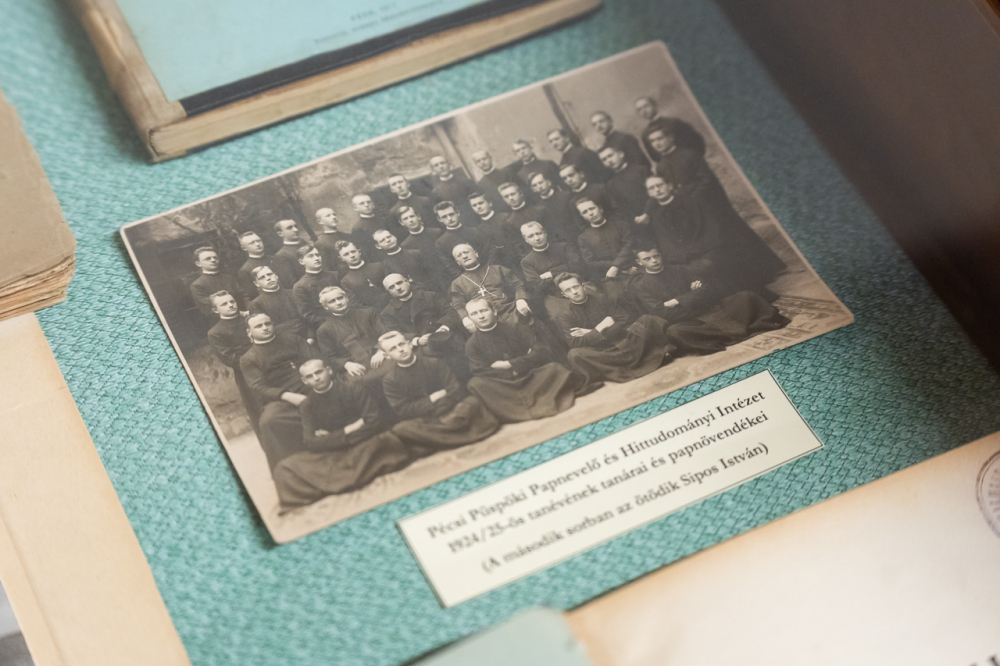 Pécsi Püspöki Papnevelő és Hittudományi Intézet
1924/25-ös tanévének tanárai és papnövendékei
(A második sorban az ötödik Sipos István)